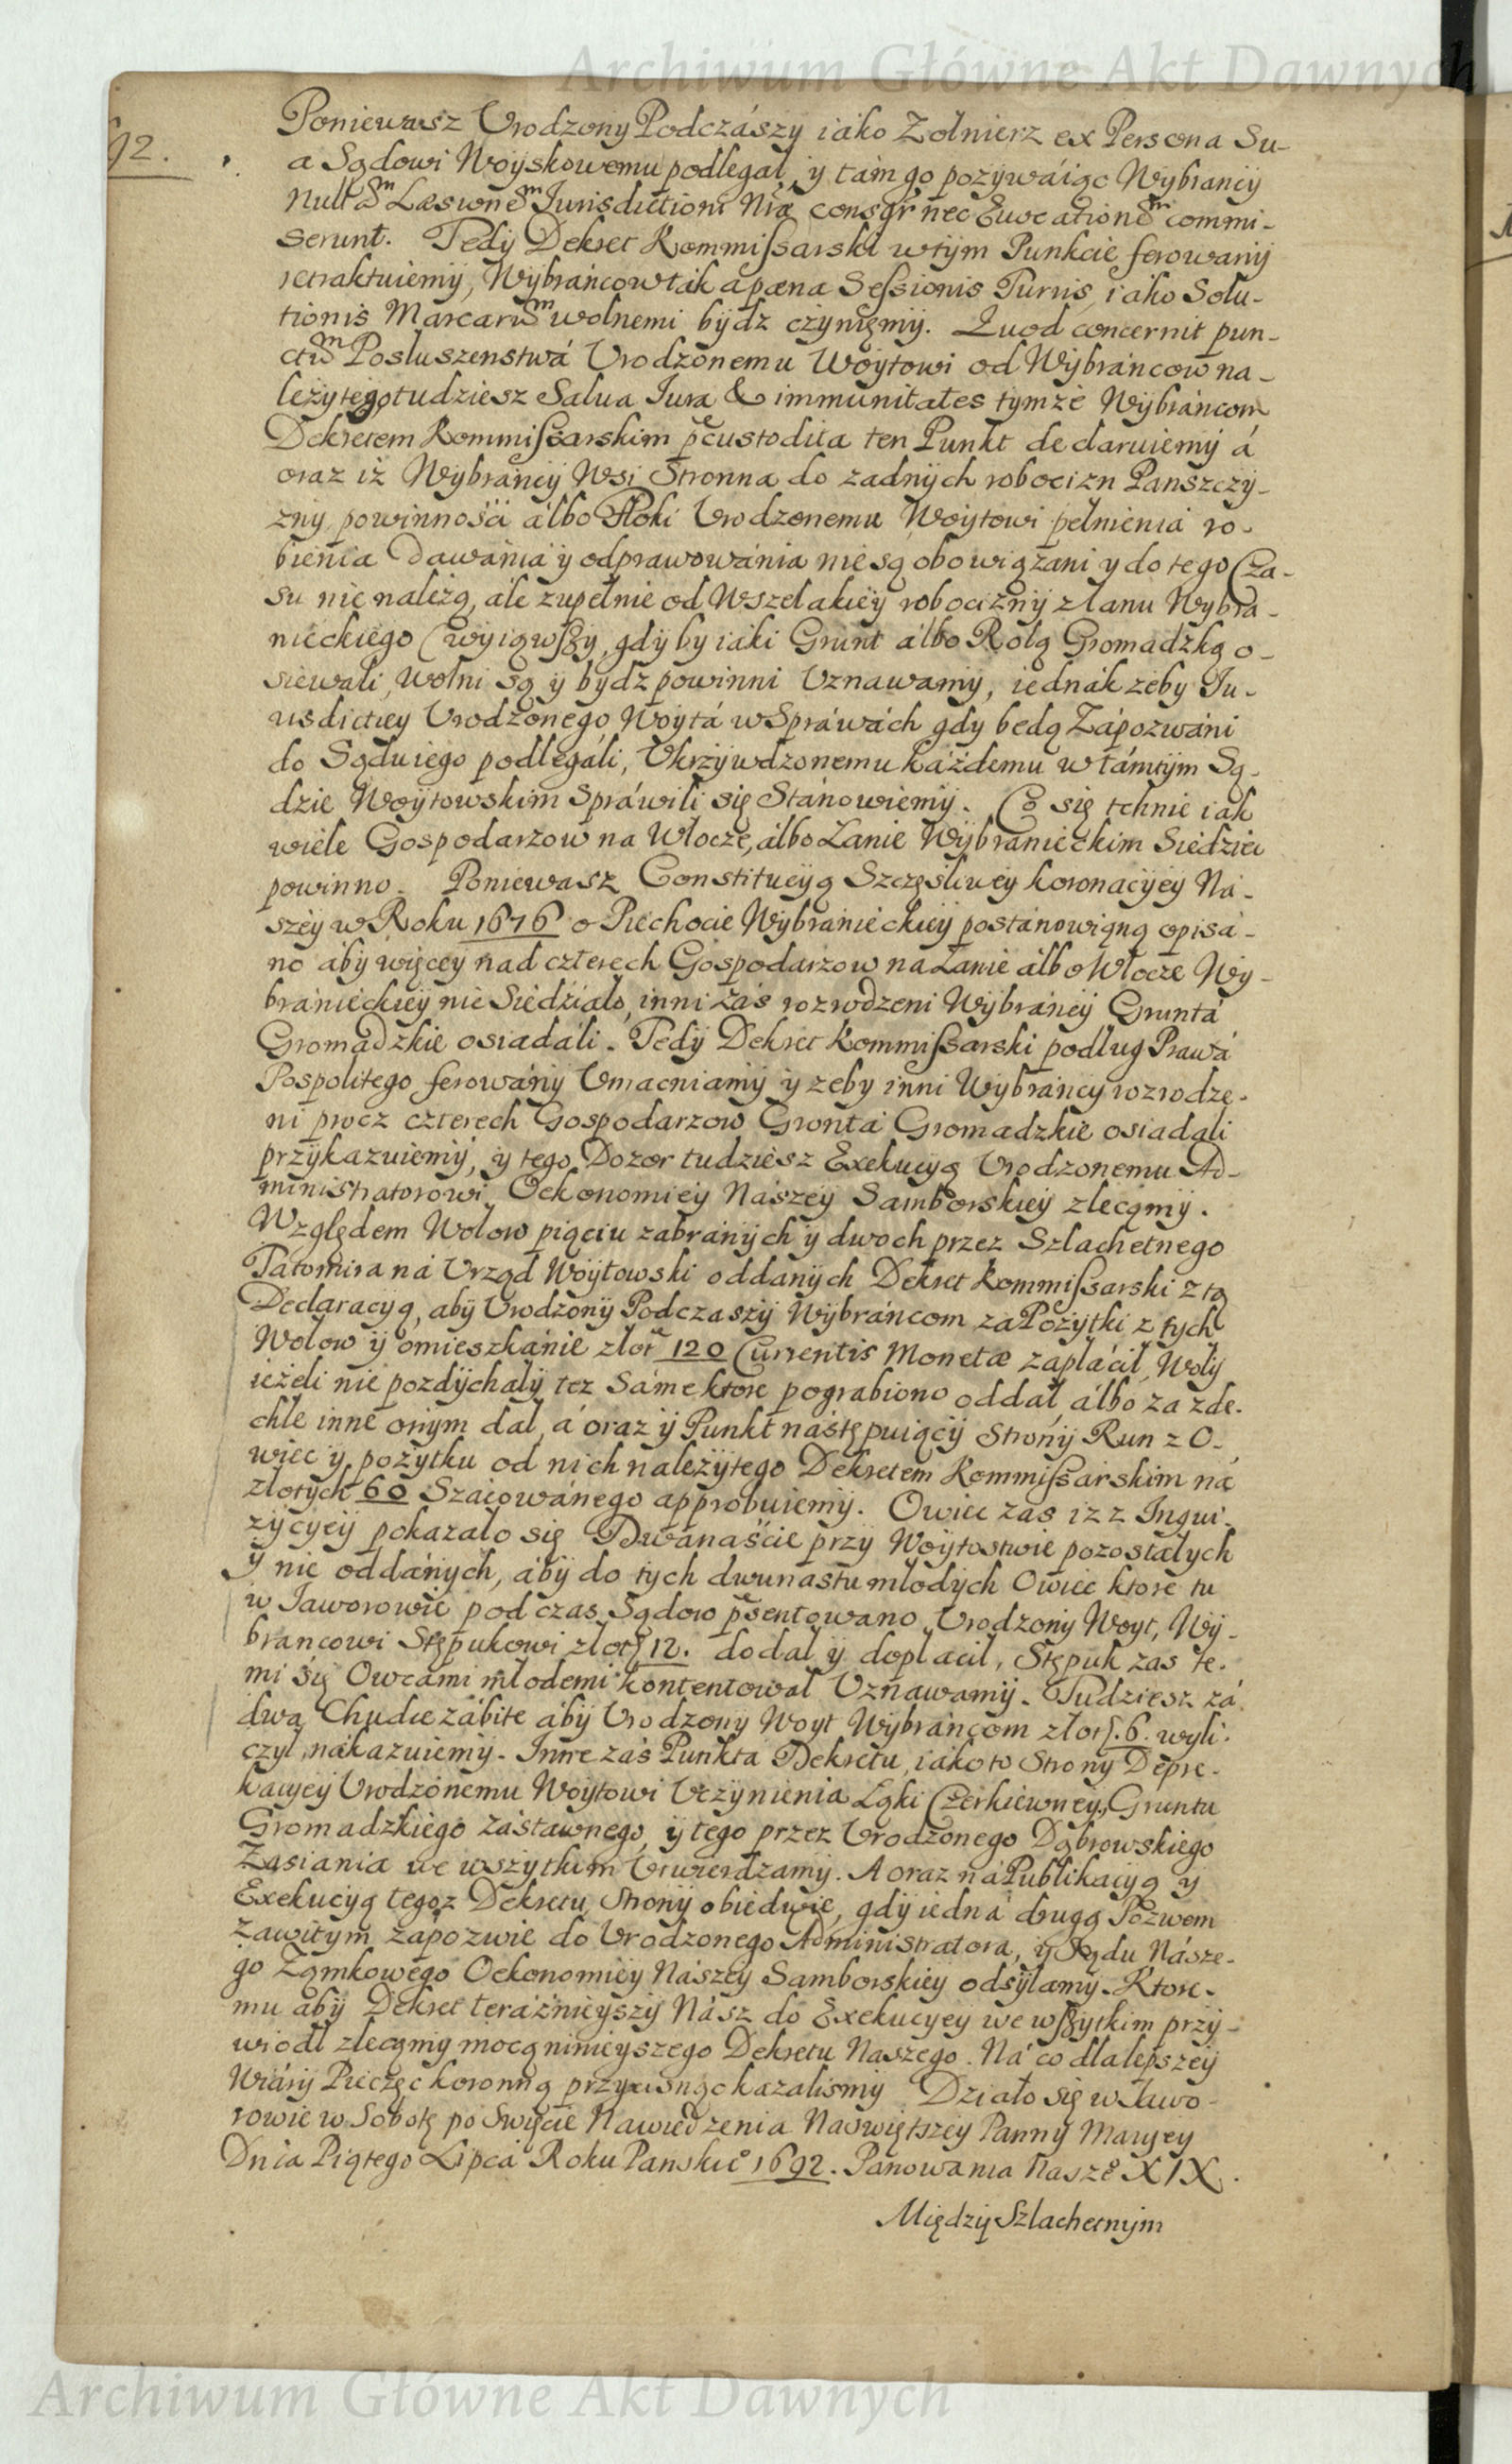 Archiwum Główne Akt Dawnych
92.
Poniewasz Vrodzony Podczászy iáko Zołnierz ex Persona Su-
a Sądowi Woyskowemu podlegał, y tám go pozywáiąc Wybrancy
null<sup>m</sup> Læsione<sup>m</sup> Iurisdictioni Nræ consgr nec Euocatione<sup>m</sup> commi-
serunt. Tedy Dekret Kommissarski wtym Punkcie ferowany
retraktuiemy, Wybráncow ták a pæna Sessionis Turris, iáko Solu-
tionis Marcaru<sup>m</sup> wolnemi bydz czyniemy. Quod concernit pun-
ctu<sup>m</sup> Posluszenstwá Vrodzonemu Woytowi od Wybráncow na-
leżytego tudziesz Salua Iura & immunitates tymże Wybráncom
Dekretem Kommissarskim pcustodita ten Punkt declaruiemy á
oraz iż Wybráncy Wsi Stronna do zadnych robocizn Panszczy-
zny, powinnośći álbo Tłoki Vrodzonemu Woytowi pełnienia ro-
bienia dawánia y odprawowánia nie są obowiązani y do tego Cza-
su nie należą, ále zupełnie od Wszelakiey robocizny z łanu Wybra-
nieckiego (wyiąwszy, gdy by iáki Grunt álbo Rolą Gromadzką o-
siewali, Wolni są y bydz powinni Vznawamy, iednák zeby Iu-
risdictiey Vrodzonego Woytá w Spráwách gdy będą Zápozwáni
do Sądu iego podlegáli, Vkrzywdzonemu káżdemu w támtym Są-
dzie Woytowskim Spráwili się Stánowiemy. Co się tchnie iak
wiele Gospodarzow na Włocze, álbo Łanie Wybranieckim Siedzieć
powinno. Poniewasz Constitucyą Szczęśliwey koronacyey Ná-
szey w Roku 1676 o Piechocie Wybranieckiey postánowioną opisá-
no áby więcey nad czterech Gospodarzow na Łanie álbo Włocze Wy-
bránieckiey nie Siedziało, inni záś rozrodzeni Wybráncy Gruntá
Gromadzkie osiadáli. Tedy Dekret Kommissarski podług Prawá
Pospolitego ferowány Vmacniamy y zeby inni Wybráncy rozrodze-
ni procz czterech Gospodarzow Grontá Gromadzkie osiadali
przykazuiemy, y tego Dozor tudziesz Exekucyą Vrodzonemu Ad-
ministratorowi Oekonomiey Nászey Samborskiey zlecamy.
Względem Wołow piąciu zabránych y dwoch przez Szlachetnego
Tatomira ná Vrząd Woytowski oddanych Dekret Kommissarski z tą
Declaracyą, aby Vrodzony Podczaszy Wybráncom za Pożytki z tych
Wołow y omieszkánie złot 120 Currentis Monetæ zapłácił, Woły
ieżeli nie pozdychały tez Sáme ktore pograbiono oddał, álbo za zde-
chłe inne onym dał, á oraz y Punkt nástępuiący Strony Run z O-
wiec y pożytku od nich należytego Dekretem Kommissárskim ná
złotych 60 Szácowánego approbuiemy. Owiec zás iz z Inqui-
zycyey pokazáło się Dwánaście przy Woytostwie pozostałych
y nie oddánych, áby do tych dwunastu młodych Owiec ktore tu
w Iaworowie podczas Sądow psentowano Vrodzony Woyt, Wy-
brancowi Stępukowi złot 12. dodał y dopłácił, Stępuk zás te-
mi się Owcámi młodemi kontentował Vznawamy. Tudziesz zá
dwa Chudce zábite áby Vrodzony Woyt Wybráncom złot. 6. wyli-
czył nákazuiemy. Inne záś Punkta Dekretu, iáko to Strony Depre-
kacyey Vrodzonemu Woytowi Vczynienia Łąki Czerkiewney, Gruntu
Gromadzkiego Zástawnego, y tego przez Vrodzonego Dąbrowskiego
Zasiania we wszytkim Vtwierdzamy. A oraz ná Publikacyą y
Exekucyą tegoz Dekretu, Strony obiedwie, gdy iedná drugą Pozwem
Zawitym zápozwie do Vrodzonego Administratora, y Sądu Násze-
go Zamkowego Oekonomiey Nászey Samborskiey odsyłamy. Ktore-
mu aby Dekret teráźnieyszy Nász do Exekucyey we wszytkim przy-
wiodł zlecamy mocą ninieyszego Dekretu Naszego. Ná co dla lepszey
Wiáry Pieczęć koronną przycisnąć kazalismy Działo się w Iawo-
rowie w Sobotę po Swięcie Nawiedzenia Naswiętszey Panny Maryey
Dnia Piątego Lipca Roku Panskie° 1692. Panowania Nasze° XIX.
Między Szlachetnym
Archiwum Główne Akt Dawnych